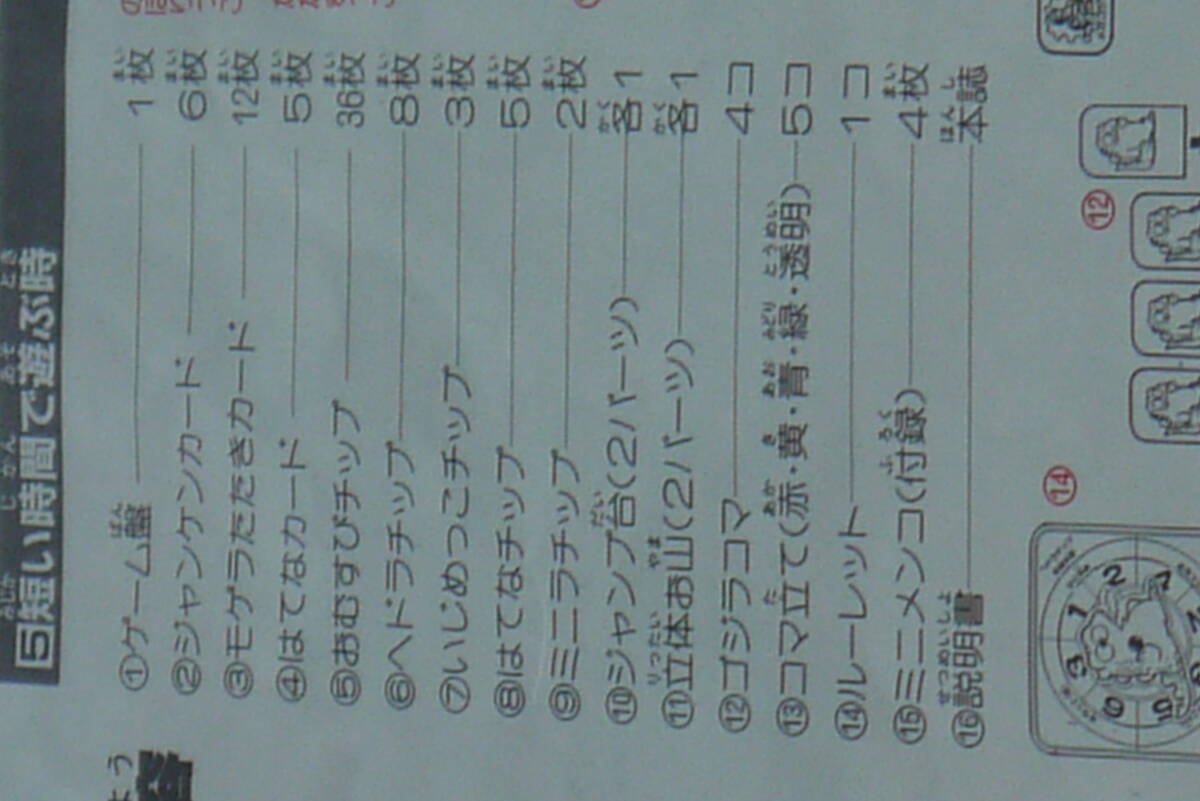 5短い時間で遊ぶ時
①ゲーム盤 1枚
②ジャンケンカード 6枚
③モゲラたたきカード 12枚
④はてなカード 5枚
⑤おむすびチップ 36枚
⑥ヘドラチップ 8枚
⑦いじめっこチップ 3枚
⑧はてなチップ 5枚
⑨ミニラチップ 2枚
⑩ジャンプ台(2パーツ) 各1
⑪立体お山(2パーツ) 各1
⑫ゴジラコマ 4コ
⑬コマ立て(赤・黄・青・緑・透明) 5コ
⑭ルーレット 1コ
⑮ミニメンコ(付録) 4枚
⑯説明書 本誌
⑫
⑭